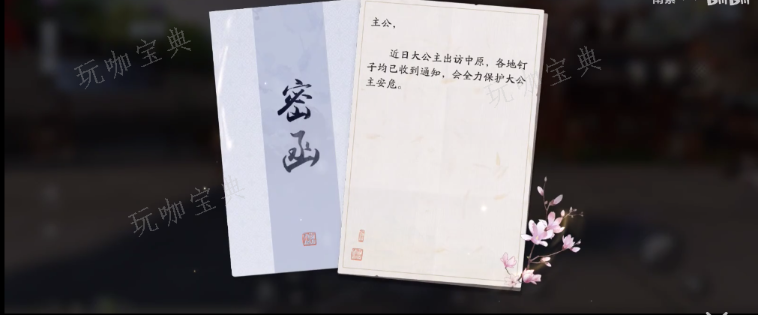 密函
主公，
近日大公主出访中原，各地钉
子均已收到通知，会全力保护大公
主安危。
玩咖宝典
玩咖宝典
玩咖宝典